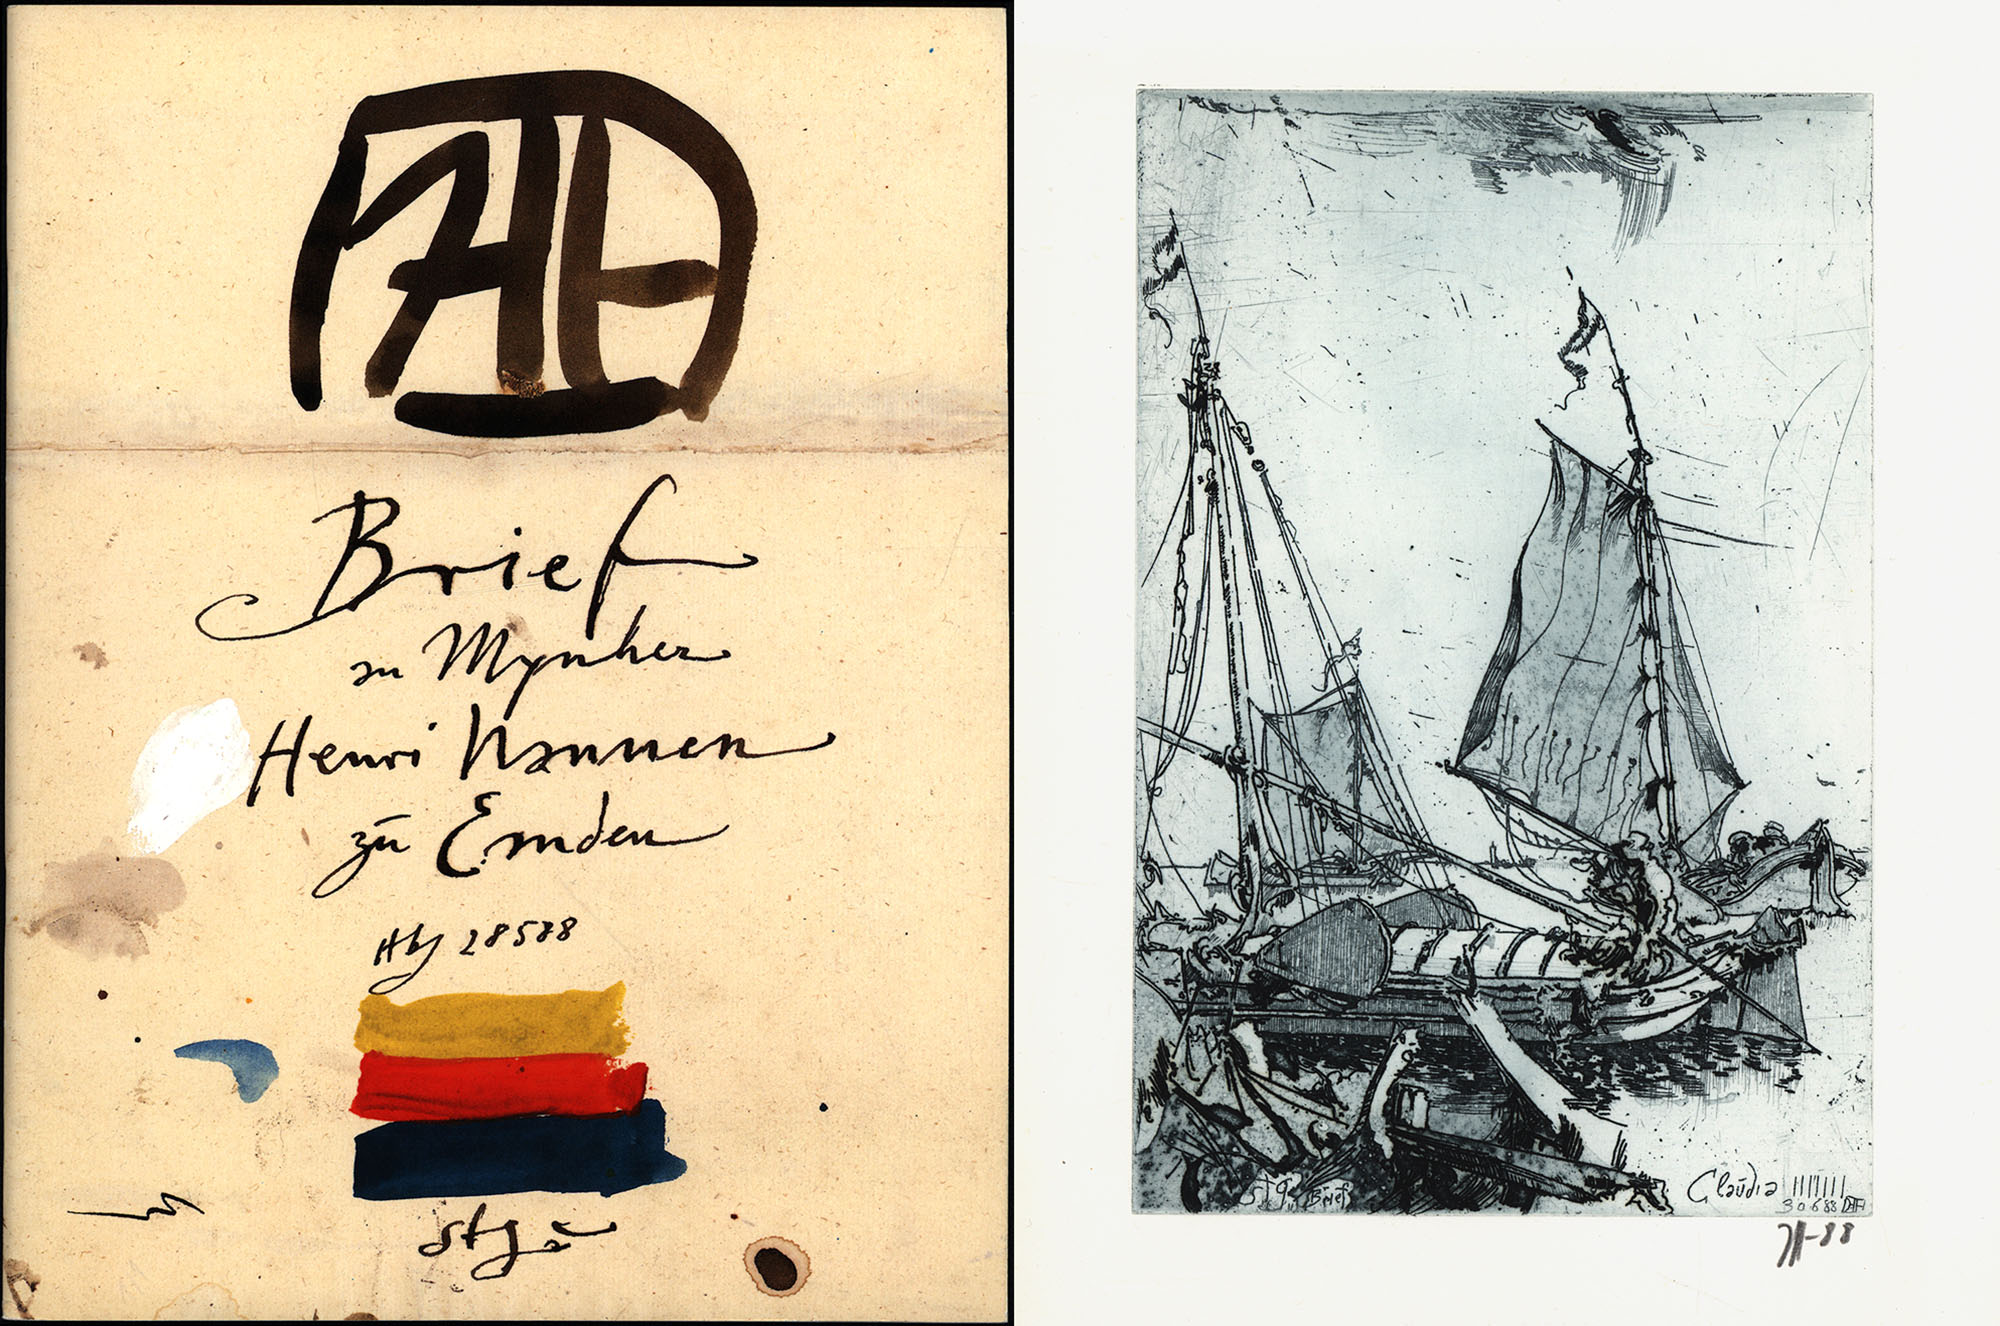 Brief
an Mynher
Henri Nannen
zu Emden
28588
Brief
Claudia
30688
-88